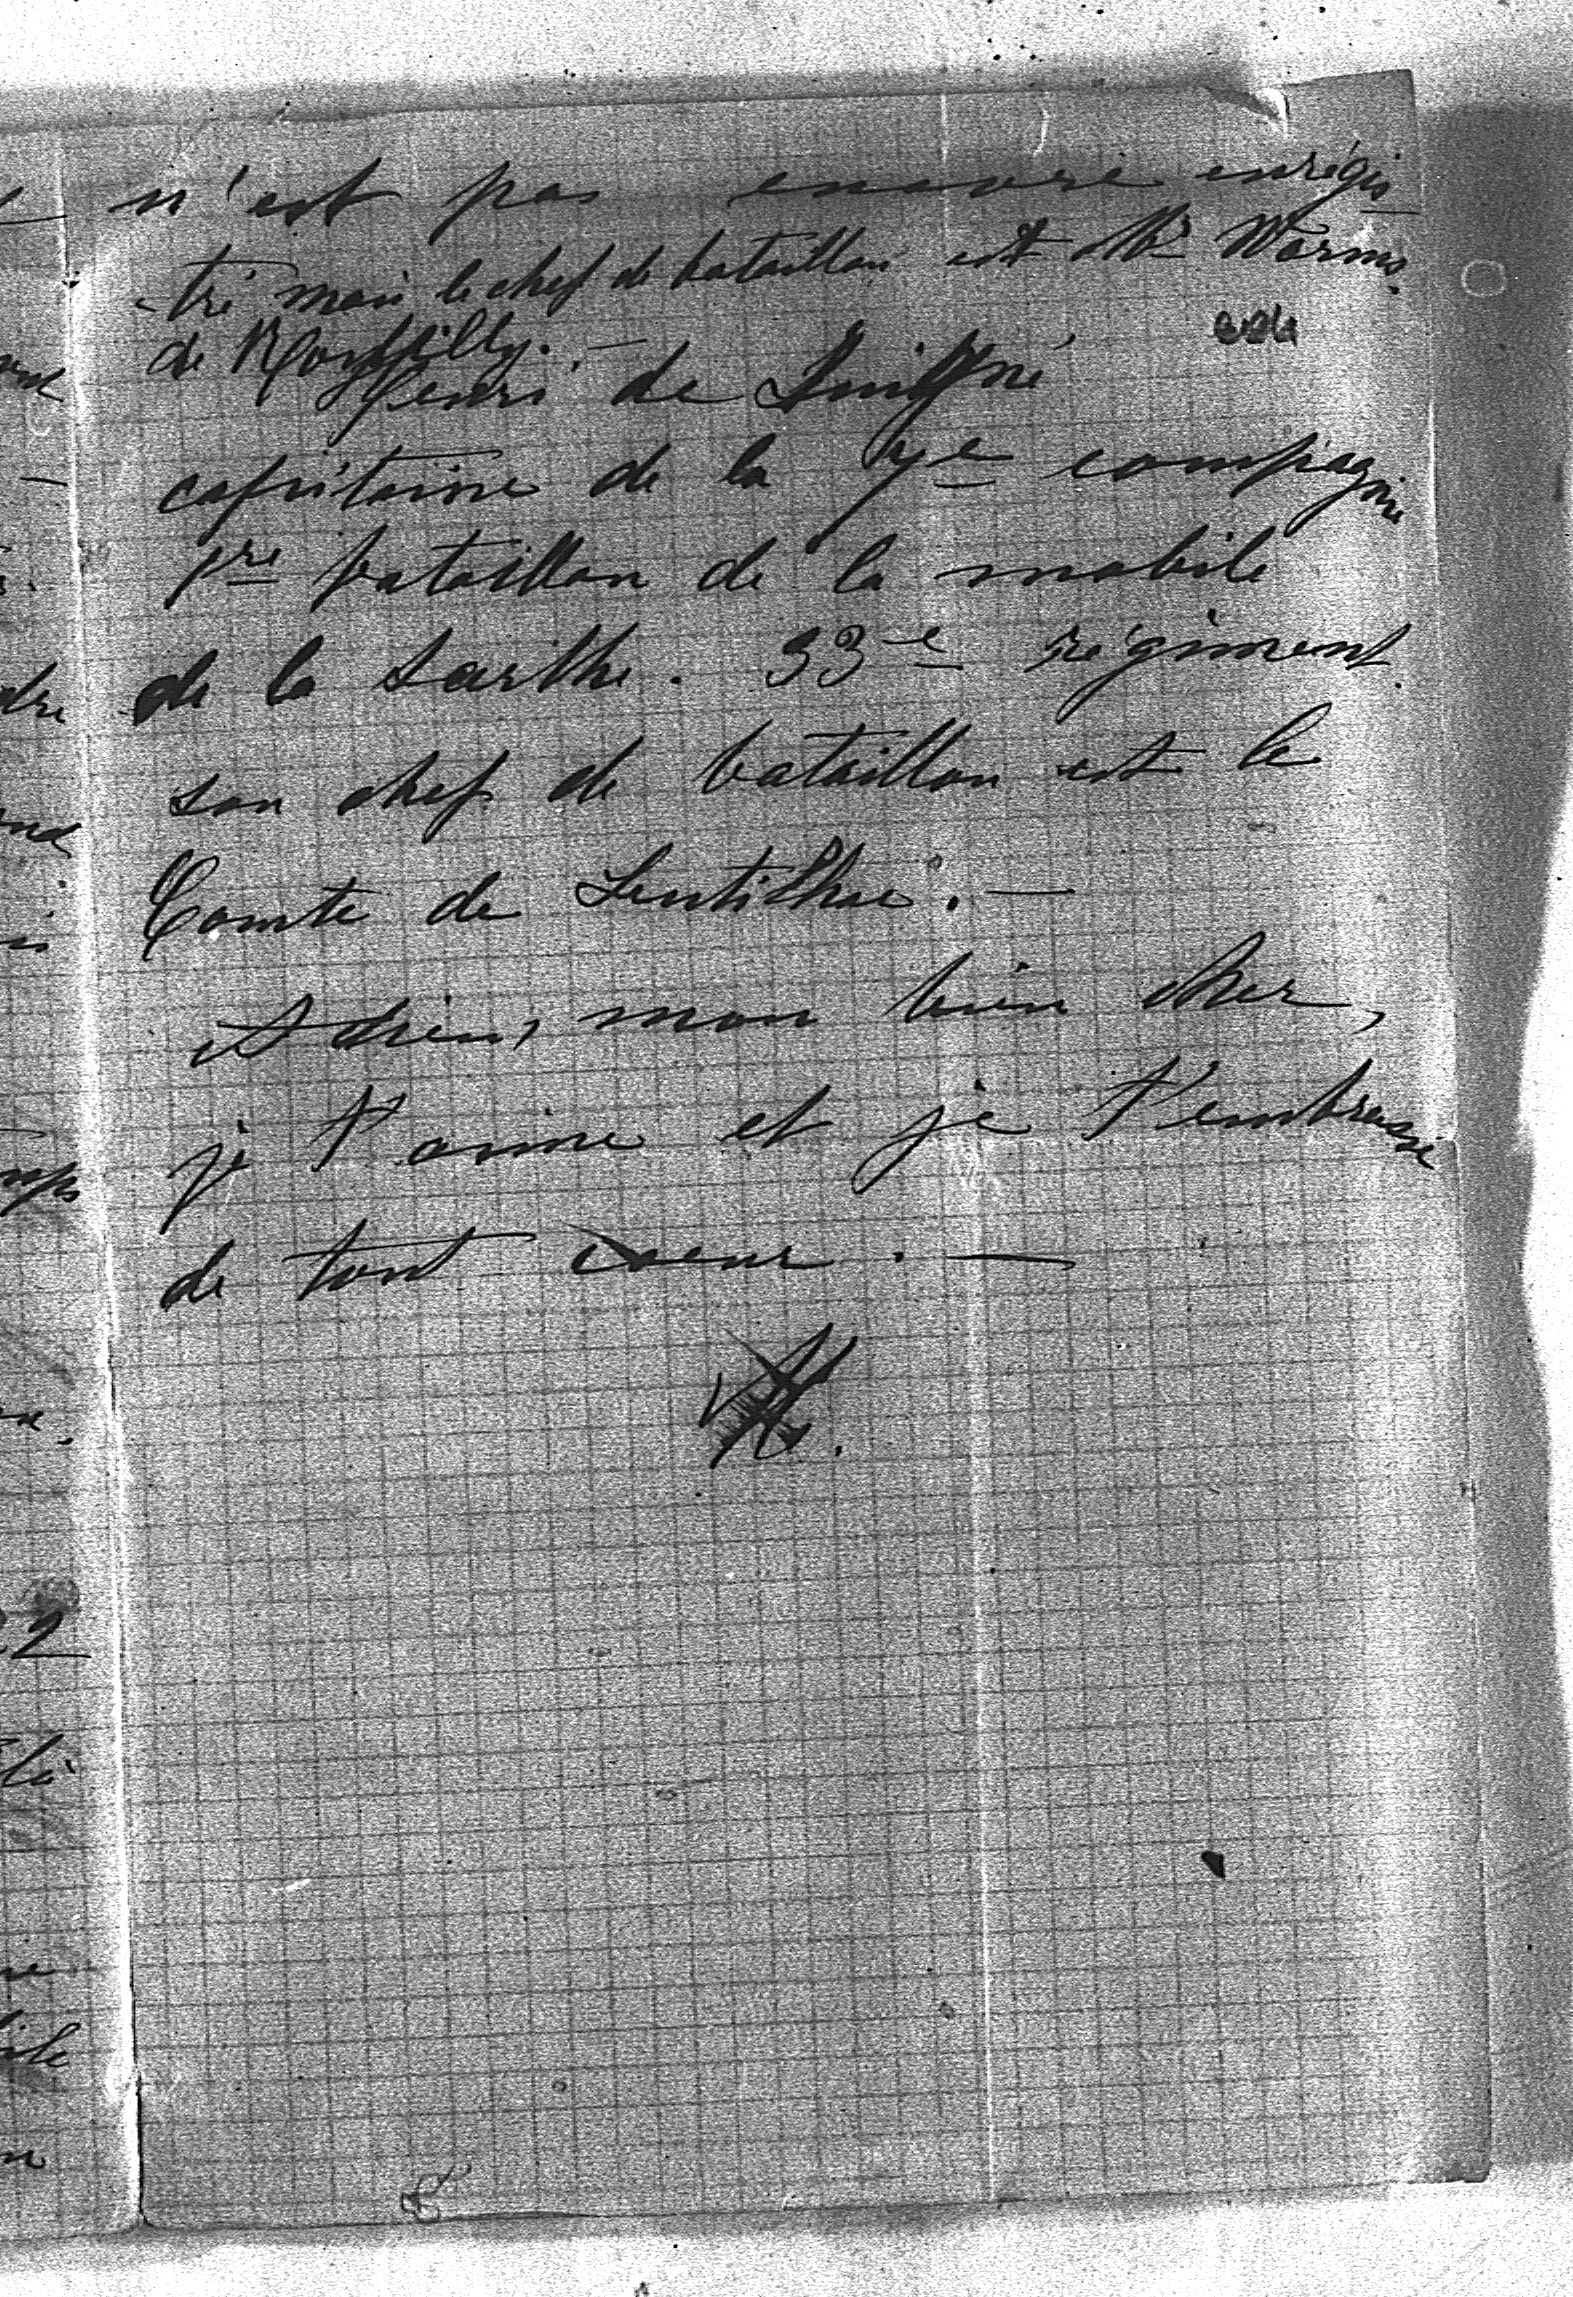 n'est pas encore enrégis
-tré mais le chef de bataillon est Mr Worms
de Romilly. —
Henri de Luigné
capitaine de la 7e compagnie
1re bataillon de la mobile
de la Sarthe. 33e régiment
son chef de bataillon est le
Comte de Lentilhac. —
Adieu, mon bien cher,
je t'aime et je t'embrasse
de tout coeur. —